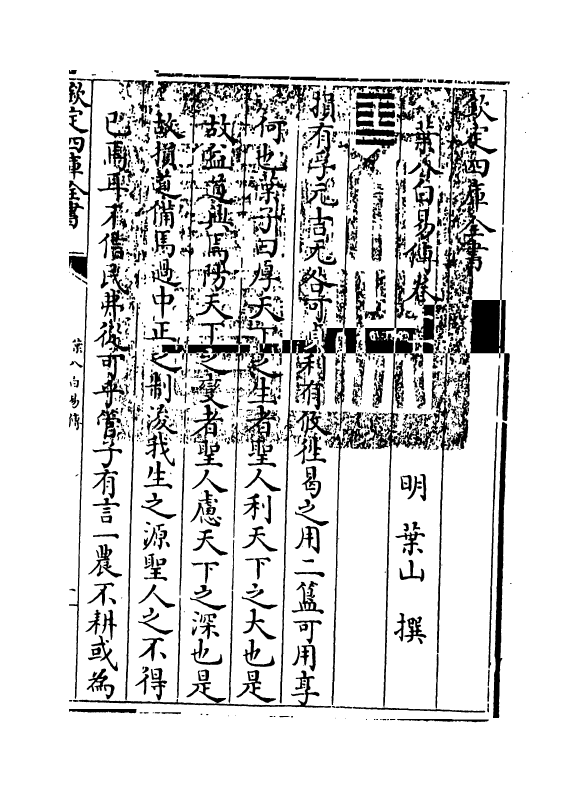 欽定四庫全書
葉八白易傳卷
明 葉山 撰
損有孚元吉无咎可貞利有攸往曷之用二簋可用享
何也葉子曰厚天下之生者聖人利天下之大也是
故益道興焉防天下之變者聖人慮天下之深也是
故損道備焉過中正之制浚我生之源聖人之不得
已焉耳不借民弗復可乎管子有言一農不耕或為
欽定四庫全書
葉八白易傳